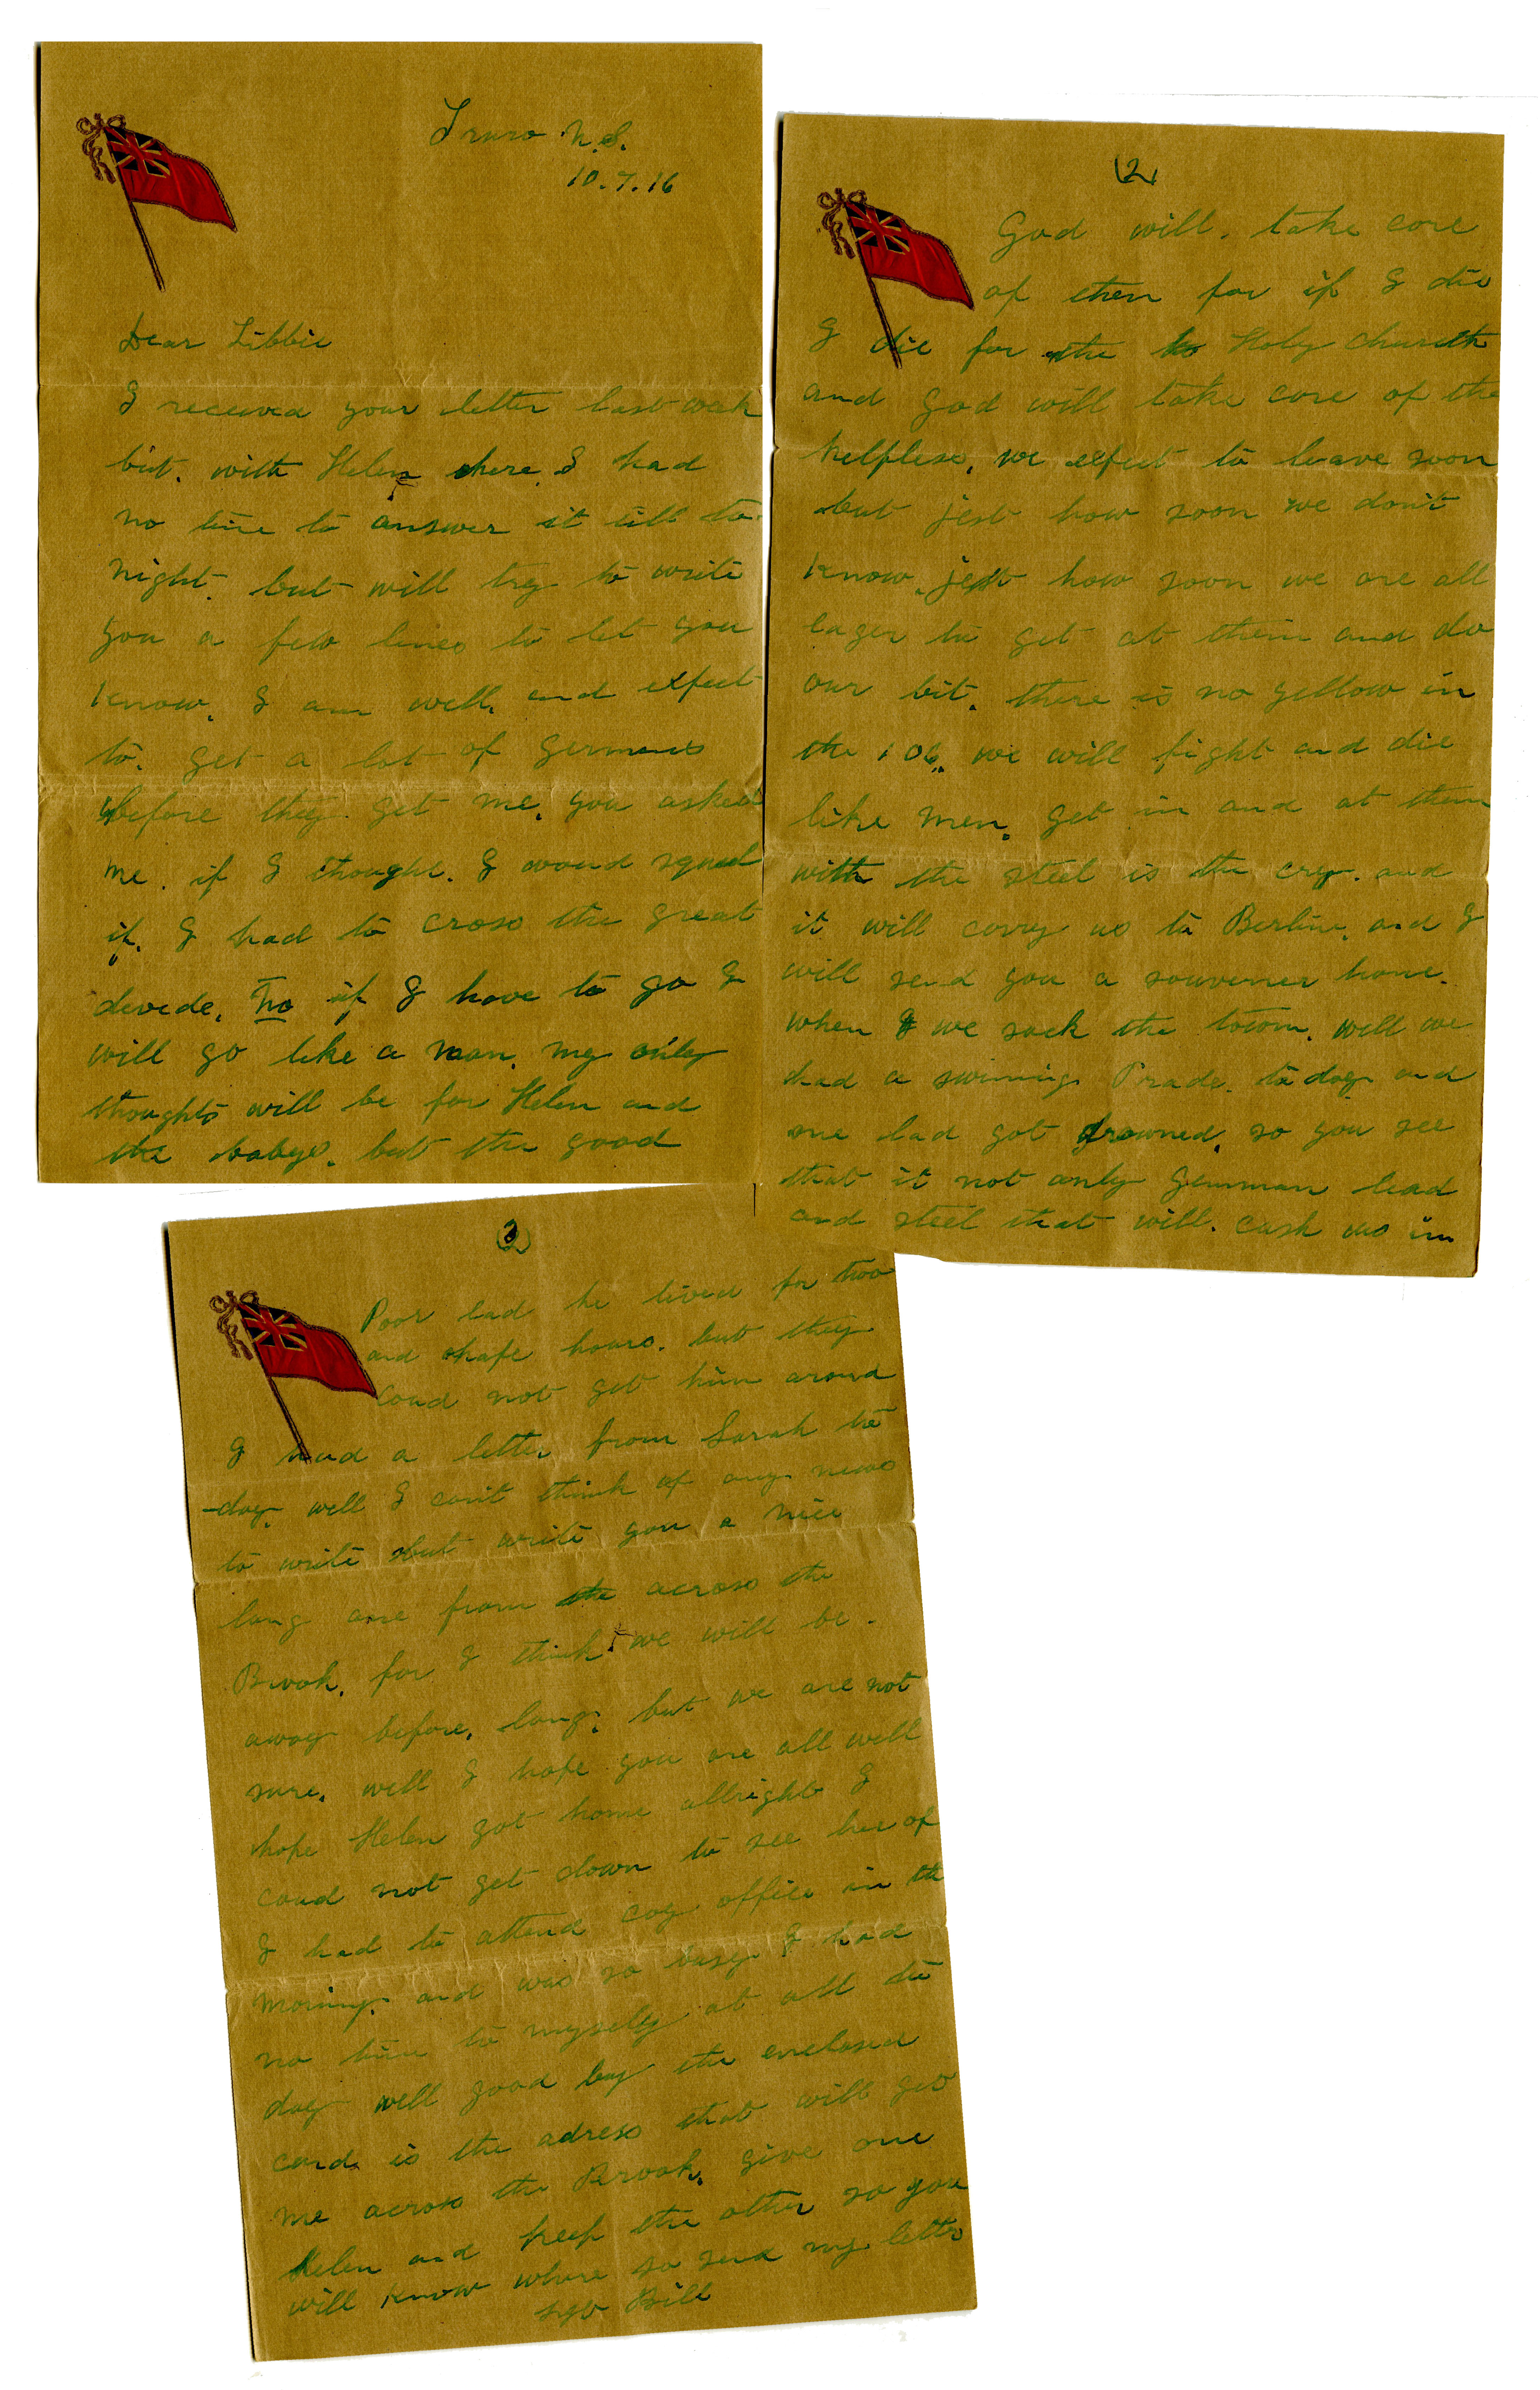 Truro N.S.
10.7.16
Dear Libbie
I received your letter last week
but. with Helen here. I had
no time to answer it till to
night. but will try to write
you a few lines to let you
know. I am well. and expect
to. get a lot of Germans
before they get me. you asked
me. if I thought. I woud squeal
if. I had to cross the great
devide. no if I have to go I
will go like a man. my only
thoughts will be for Helen and
the babys. but the good
(2)
God will. take care
of then for if I die
I die for the ho Holy church
and god will take care of the
helpless. we expect to leave soon
but jest how soon we don't
know. jest how soon we are all
eager to get at them and do
our bit. there is no yellow in
the 106. we will fight and die
like men. get in and at them
with the steel is the cry. and
it will carry us to Berlin. and I
will send you a souvener home.
when I we sack the town. well we
had a swiming Prade. to day and
one lad got drowned. so you see
that it not only Gemman lead
and steel that will. cash us in
(3)
Poor lad he lived for two
and ahafe hours. but they
Coud not get him around
I had a letter from Sarah to
-day. well I can't think of any news
to write but write you a nice
long one from the across the
Brook. for I think we will be.
away before. long. but we are not
sure. well I hope you are all well
hope Helen got home allright I
coud not get down to see her of
I had to attend coy office in the
morning. and was so busy I had
no time to myself at all to
day well good by the enclosed
card. is the adress that will get
me across the Brook. give one
Helen and keep the other so you
will know where so send my letters
Sgt Bill